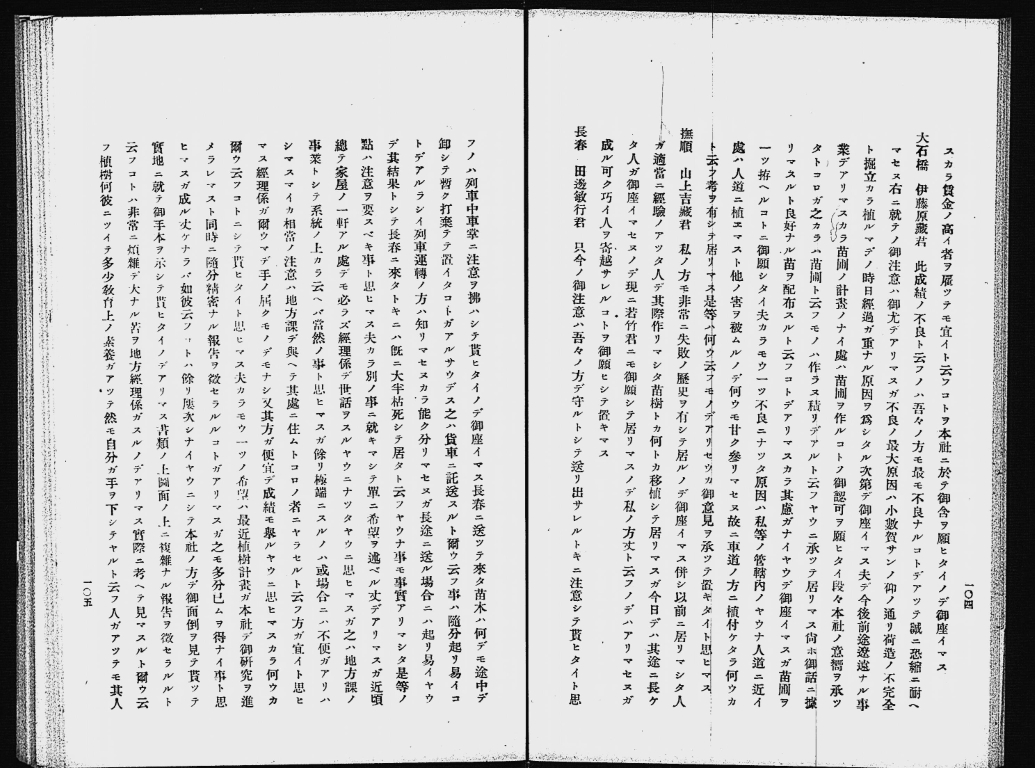 スカラ賃金ノ高イ者ヲ雇ツテモ宜イト云フコトヲ本社ニ於テ御含ヲ願ヒタイノデ御座イマス
大石橋　伊藤原藏君　此成績ノ不良ト云フノハ吾々ノ方モ最モ不良ナルコトデアツテ誠ニ恐縮ニ耐ヘ
マセヌ右ニ就テノ御注意ハ御尤デアリマスガ不良ノ最大原因ハ小數賀サンノ仰ノ通リ荷造ノ不完全
ト掘立カラ植ルマデノ時日經過ガ重ナル原因ヲ爲シタル次第デ御座イマス夫デ今後前途遼遠ナル事
業デアリマスカラ苗圃ノ計畫ノナイ處ハ苗圃ヲ作ルコトノ御認可ヲ願ヒタイ段々本社ノ意嚮ヲ承ツ
タトコロガ之カラハ苗圃ト云フモノハ作ラヌ積リデアルト云フヤウニ承ツテ居リマス尚ホ御話ニ據
リマスルト良好ナル苗ヲ配布スルト云フコトデアリマスカラ其慮ガナイヤウデ御座イマスガ苗圃ヲ
一ツ拵ヘルコトニ御願シタイ夫カラモウ一ツ不良ニナツタ原因ハ私等ノ管轄内ノヤウナ人道ニ近イ
處ハ人道ニ植エマスト他ノ害ヲ被ムルノデ何ウモ甘ク參リマセヌ故ニ車道ノ方ニ植付ケタラ何ウカ
ト云フ考ヲ有シテ居リマス是等ハ何ウ云フモノデアリセウカ御意見ヲ承ツテ置キタイト思ヒマス
撫順　山上吉藏君　私ノ方モ非常ニ失敗ノ歷史ヲ有シテ居ルノデ御座イマス併シ以前ニ居リマシタ人
ガ適當ニ經驗ノアツタ人デ其際作リマシタ苗樹トカ何トカ移植シテ居リマスガ今日デハ其途ニ長ケ
タ人ガ御座イマセヌノデ現ニ若竹君ニモ御願シテ居リマスノデ私ノ方丈ト云フノデハアリマセヌガ
成ル可ク巧イ人ヲ寄越サレルコトヲ御願ヒシテ置キマス
長春　田邊敏行君　只今ノ御注意ハ吾々ノ方デ守ルトシテ送リ出サレルトキニ注意シテ貰ヒタイト思
一〇四
フノハ列車中車掌ニ注意ヲ拂ハシテ貰ヒタイノデ御座イマス長春ニ送ツテ來タ苗木ハ何デモ途中デ
卸シテ暫ク打棄テテ置イタコトガアルサウデス之ハ貨車ニ託送スルト爾ウ云フ事ハ隨分起リ易イコ
トデアルラシイ列車運轉ノ方ハ知リマセスカラ能ク分リマセヌガ長途ニ送ル場合ニハ起リ易イヤウ
デ其結果トシテ長春ニ來タトキニハ旣ニ大半枯死シテ居タト云フヤウナ事モ事實アリマシタ是等ノ
點ハ注意ヲ要スベキ事ト思ヒマス夫カラ別ノ事ニ就キマシテ單ニ希望ヲ述ベル丈デアリマスガ近頃
總テ家屋ノ一軒アル處デモ必ラズ經理係デ世話ヲスルヤウニナツタヤウニ思ヒマスガ之ハ地方課ノ
事業トシテ系統ノ上カラ云ヘバ當然ノ事ト思ヒマスガ餘リ極端ニスルノハ或場合ニハ不便ガアリハ
シマスマイカ相當ノ注意ハ地方課デ與ヘテ其處ニ住ムトコロノ者ニヤラセルト云フ方ガ宜イト思ヒ
マス經理係ガ爾ウマデ手ノ屆クモノデモナシ又其方ガ便宜デ成績モ擧ルヤウニ思ヒマスカラ何ウカ
爾ウ云フコトニシテ貰ヒタイト思ヒマス夫カラモウ一ツノ希望ハ最近植樹計畫ガ本社デ御硏究ヲ進
メラレマスト同時ニ隨分精密ナル報告ヲ徴セラルルコトガアリマスガ之モ多分已ムヲ得ナイ事ト思
ヒマスガ成ル丈ケナラバ如彼云フコトハ餘リ屢次シナイヤウニシテ本社ノ方デ御面倒ヲ見テ貰ツテ
實地ニ就テ御手本ヲ示シテ貰ヒタイノデアリマス書類ノ上圖面ノ上ニ複雜ナル報告ヲ徴セラルルト
云フコトハ非常ニ煩雜デ大ナル苦ヲ地方經理係ガスルノデアリマス實際ニ考ヘテ見マスルト爾ウ云
フ植樹何彼ニツイテ多少敎育上ノ素養ガアツテ然モ自分ガ手ヲ下シテヤルト云フ人ガアツテモ其人
一〇五